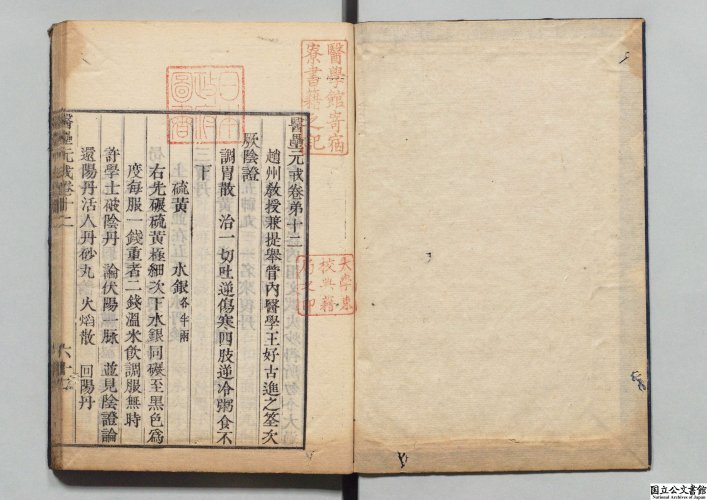 醫壘元戎卷第十二
趙州教授兼提舉管內醫學王好古進之筌次
厥陰證
調胃散 治一切吐逆傷寒四肢逆冷粥食不
下
硫黃 水銀各半兩
右先碾硫黃極細次下水銀同碾至黑色為
度每服一錢重者二錢溫米飲調服無時
許學士破陰丹 論伏陽一脉 並見陰證論
還陽丹活人丹砂丸 火焰散 回陽丹
醫壘元戎卷十二
醫學館寄宿
寮書籍之記
大學東
校典籍
局之印
日本
政府
圖書
国立公文書館
National Archives of Japan